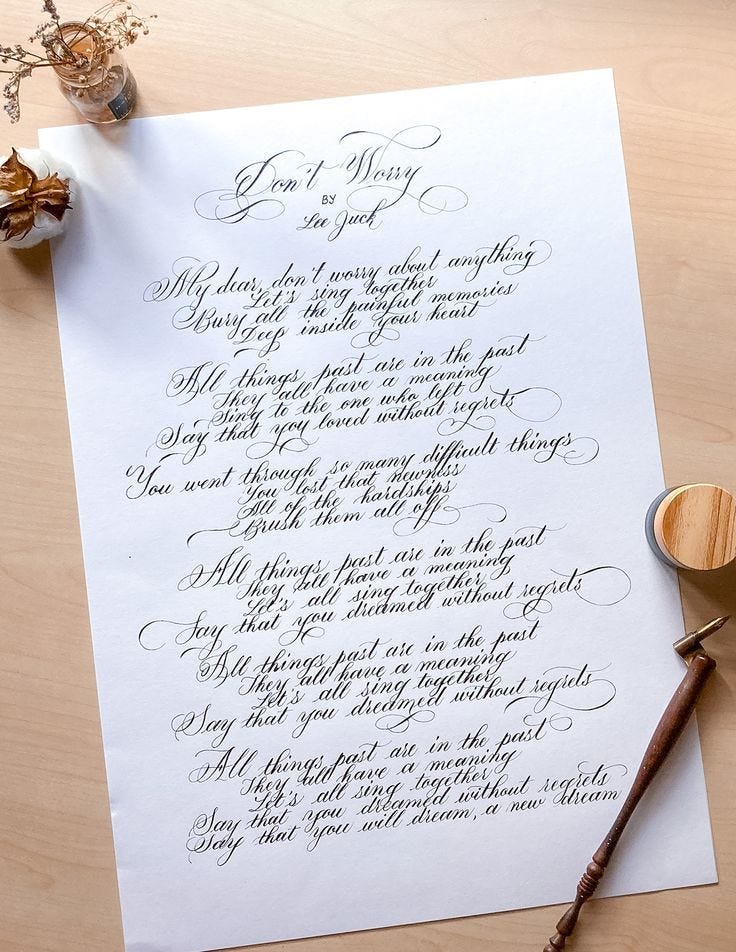 Don't Worry
BY
Lee Juck
My dear, don't worry about anything
Let's sing together
Bury all the painful memories
Deep inside your heart
All things past are in the past
They all have a meaning
Sing to the one who left
Say that you loved without regrets
You went through so many difficult things
You lost that newness
All of the hardships
Brush them all off
All things past are in the past
They all have a meaning
Let's all sing together
Say that you dreamed without regrets
All things past are in the past
They all have a meaning
Let's all sing together
Say that you dreamed without regrets
All things past are in the past
They all have a meaning
Let's all sing together
Say that you dreamed without regrets
Say that you will dream, a new dream